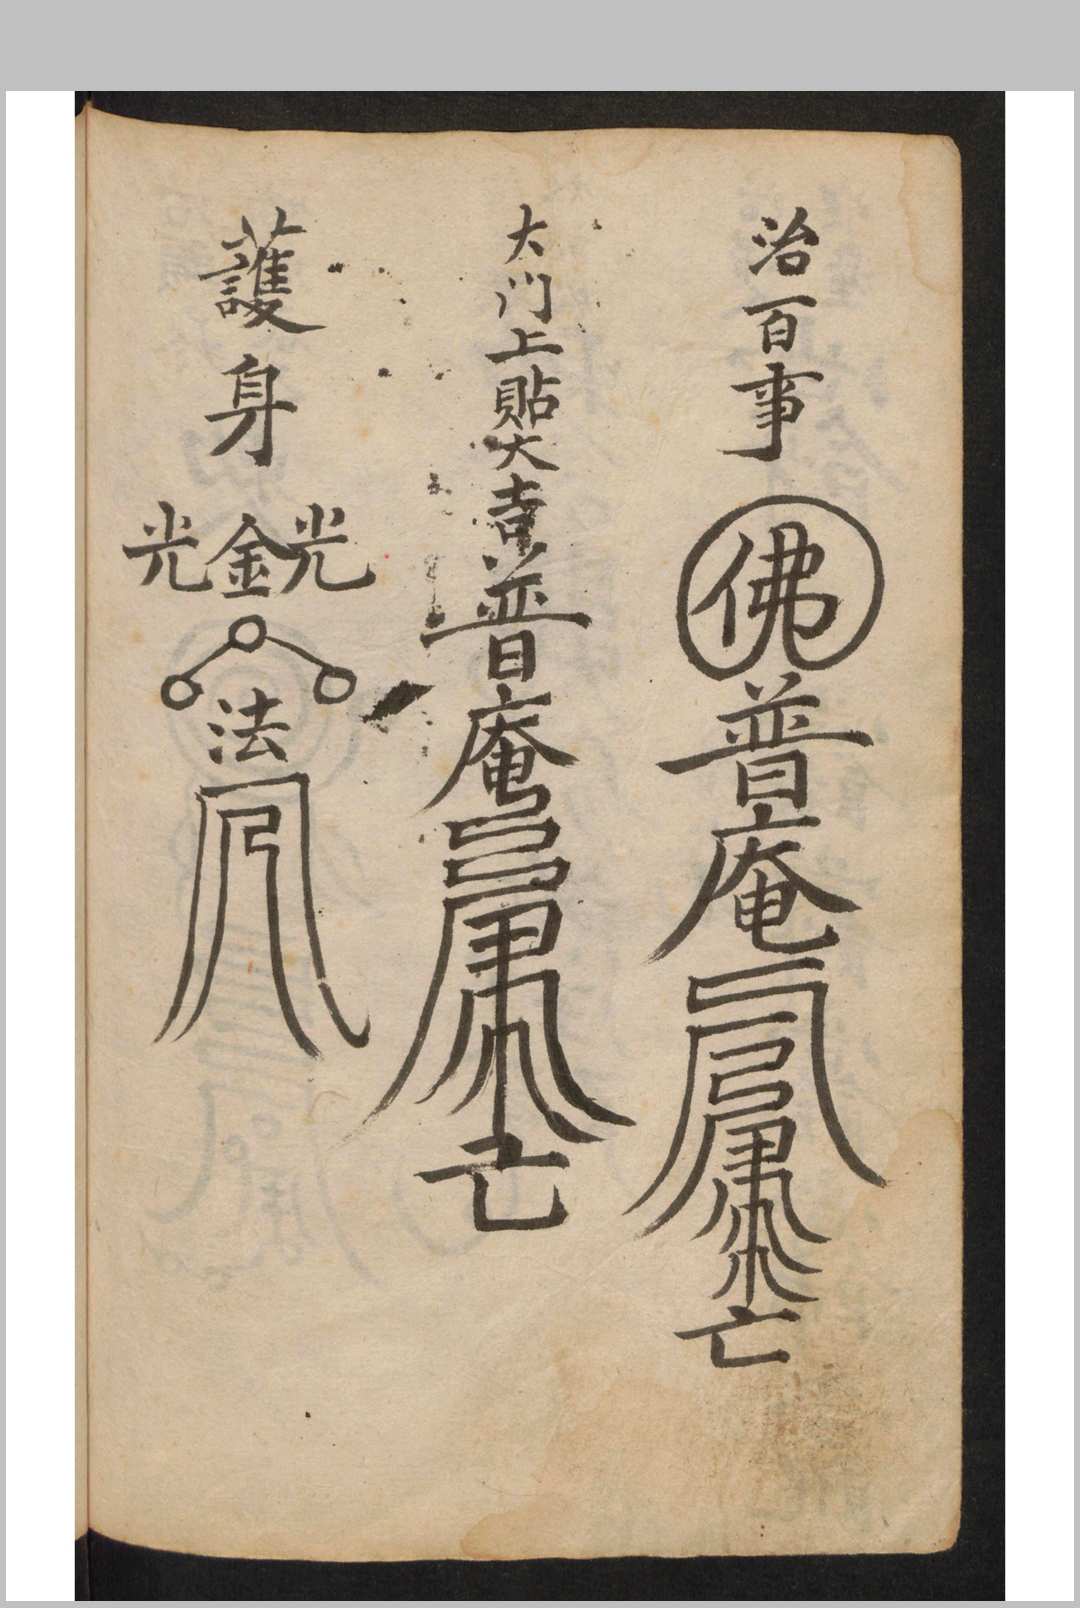 治百事
佛
普庵
亡
大门上貼大吉
普庵
亡
護身
光金光
法